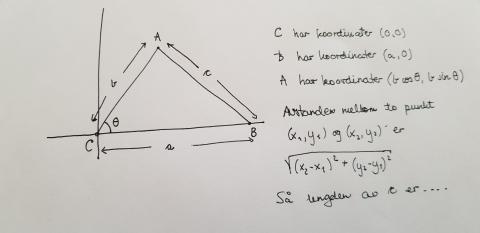 A
b
c
θ
C
B
a
C har koordinater (0,0)
B har koordinater (a,0)
A har koordinater (b cos θ, b sin θ)
Avstanden mellom to punkt
(x₁, y₁) og (x₂, y₂) er
√(x₂-x₁)² + (y₂-y₁)²
Så lengden av c er ....